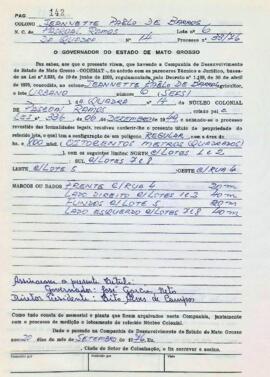 PAG 142
COLONO JEANNETTE PABLO DE BARROS
N. C. de PASCOAL RAMOS LOTE n.o 6
QUADRA 14 Processo 38/76
O GOVERNADOR DO ESTADO DE MATO GROSSO
Faz saber, aos que o presente virem, que havendo a Companhia de Desenvolvimento
do Estado de Mato Grosso - CODEMAT -, de acordo com os pareceres Técnico e Jurídico, basea-
de 1970, concedido, ao colono JEANNETTE PABLO DE BARROS
lote URBANO n.o 6 (SEIS)
da QUADRA nº 14 do NÚCLEO COLONIAL
de PASCOAL RAMOS
Lei nº 336 de 06 de DEZEMBRO de 1949
revestido das formalidades legais, resolveu conferir-lhe o presente título de propriedade do
referido lote, o qual tem a configuração de um polígono REGULAR com a área de
800 (OITOCENTOS METROS QUADRADOS)
com os seguintes limites: NORTE c/LOTES 1 e 2
SUL c/LOTES 7 e 8
LESTE c/LOTE 5 OESTE c/RUA 4
MARCOS OU LADOS FRENTE c/RUA 4 20 m
LADO DIREITO c/LOTES 1 e 2 40 m
FUNDOS c/LOTE 5 20 m
LADO ESQUERDO c/LOTES 7 e 8 40 m
Assinaram o presente Título:
Governador: José Garcia Neto
Diretor Presidente: Bento Alves de Campos
Como tudo consta do memorial e planta que ficam arquivados nesta Companhia, juntamente
com o processo de medição e loteamento do referido Núcleo Colonial.
Dado e passado na Companhia de Desenvolvimento do Estado de Mato Grosso
aos 20 dias do mês de SETEMBRO de 1976. Eu
Chefe do Setor de Colonização, o fiz escrever e assino.